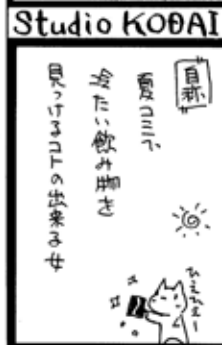 Studio KOBAI
自称
夏コミで
冷たい飲み物を
見つけるコトの出来る女
ひえひえー